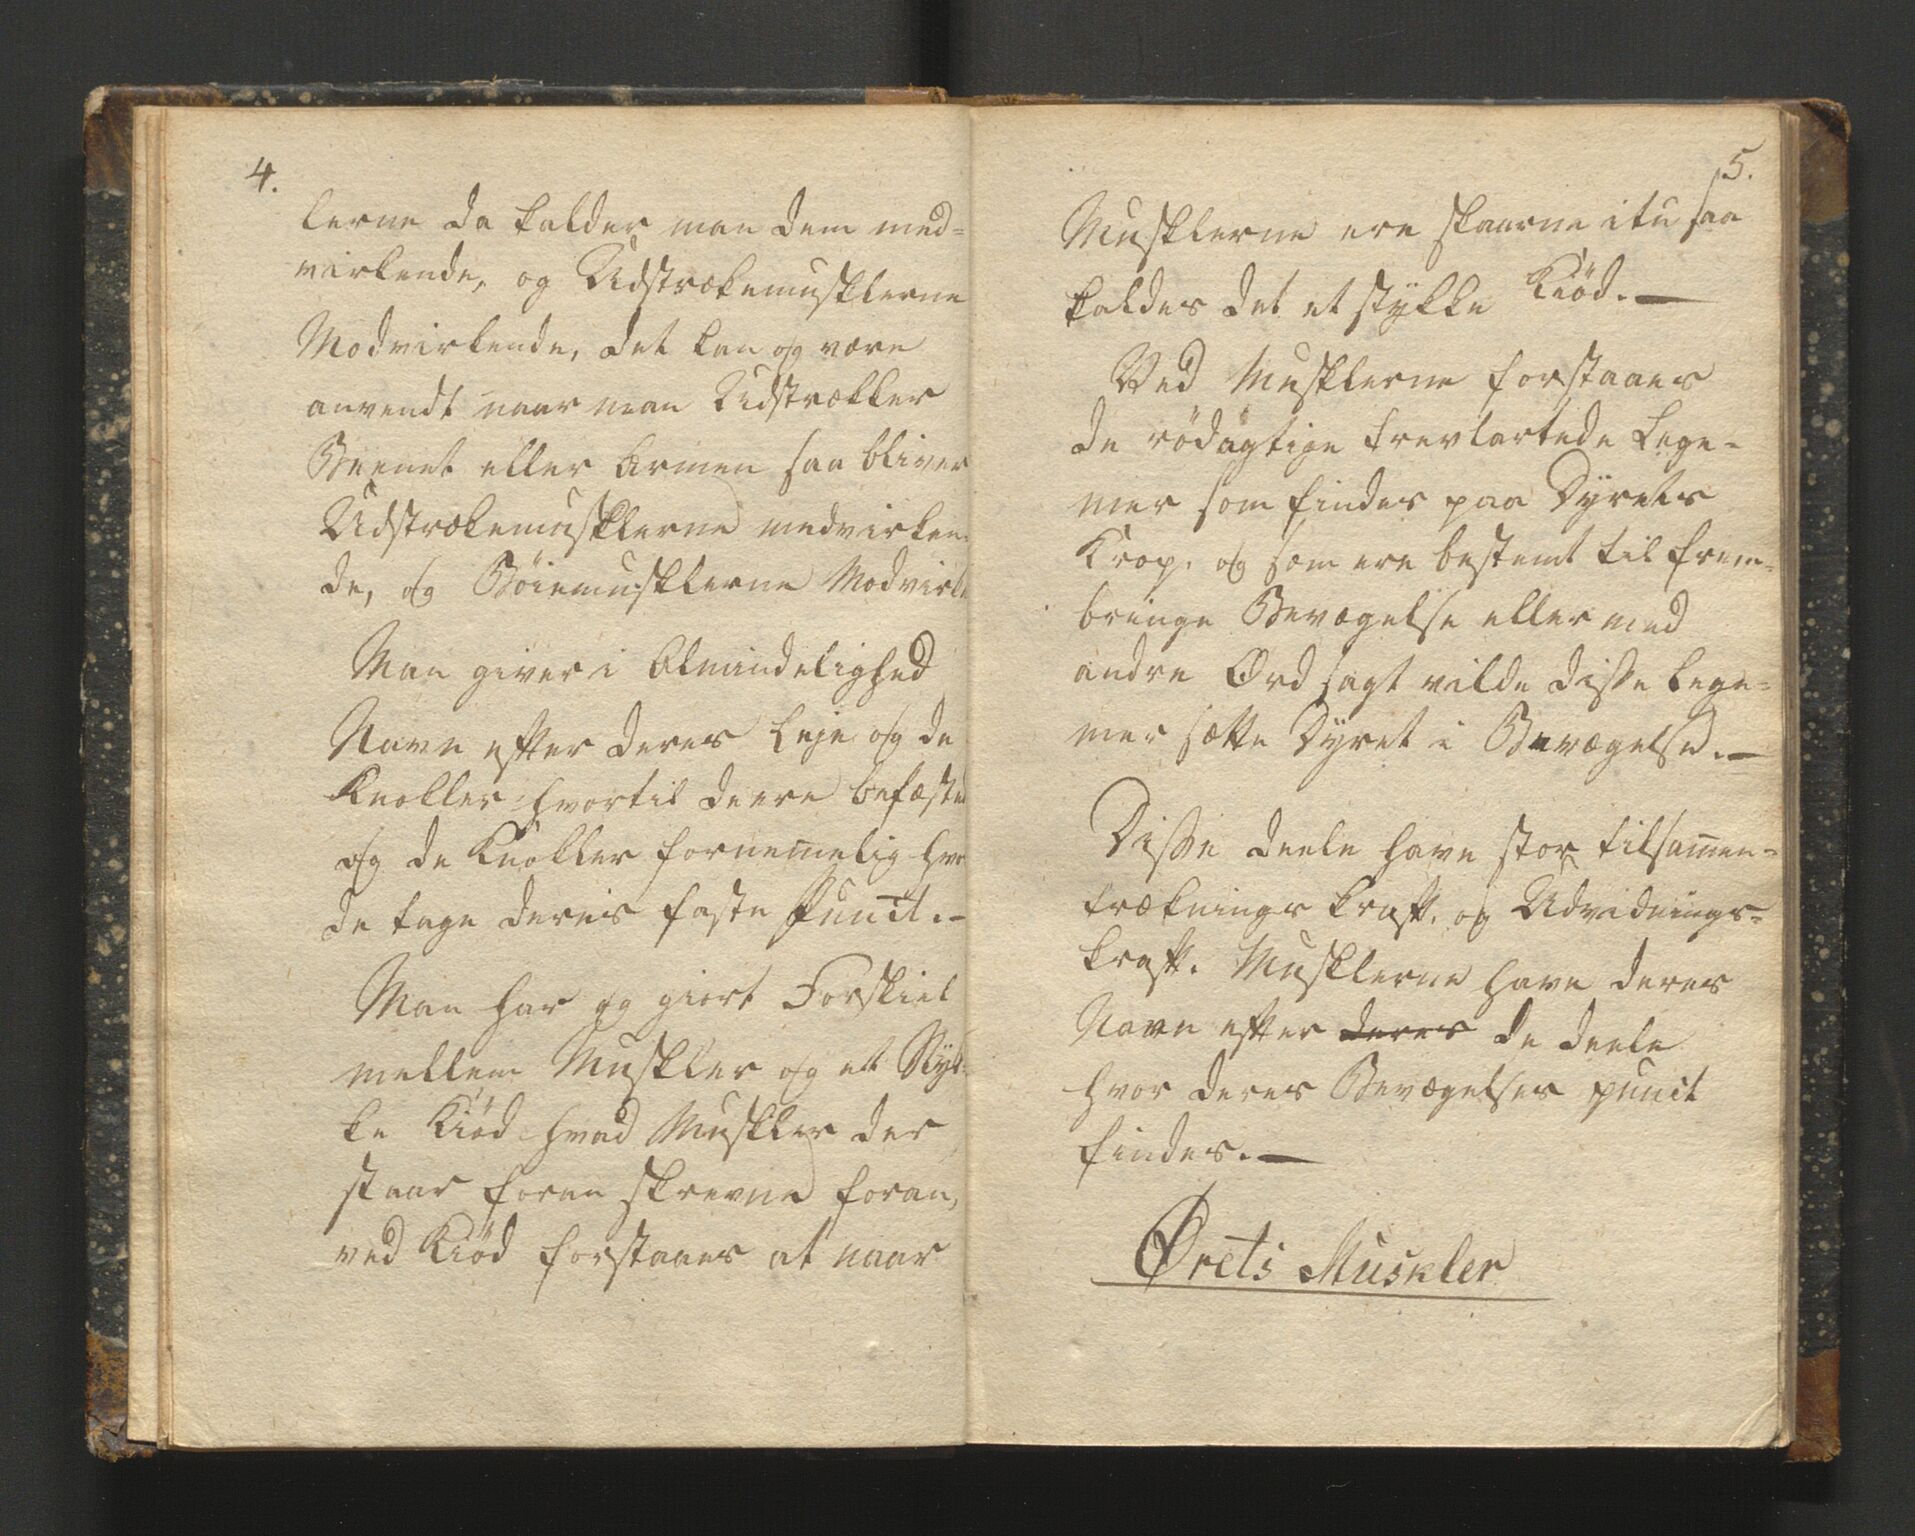 4.
lerne da kalder man dem med=
virkende, og Udstrækemusklerne
Modvirkende, det kan og være
anvendt naar man Udstrækker
Beenet eller Armen saa bliver
Udstrækemusklerne medvirken=
de, og Böiemusklerne Modvirke
Man giver i Almindelighed
Navn efter deres Leje og de
Knokler hvortil de ere befæsted
og de Knokler fornemelig hvor
de tage deres faste Punct.-
Man har og giort Forskiel
mellem Muskler og et Styk=
ke Kiöd hvad Muskler der
staar foran skrevne foran,
ved Kiöd forstaaes at naar
5.
Musklerne ere skaarne itu saa
kaldes det et stykke Kiöd.—
Ved Musklerne forstaaes
de rödagtige trevlartede Lege=
mer som findes paa Dyrets
Krop. og som ere bestemt til frem=
bringe Bevægelse eller med
andre Ord sagt vilde disse Lege=
mer sætte Dyret i Bevægelse.—
Disse deele have stor tilsamen=
træknings kraft. og Udvidnings=
kraft. Musklerne have deres
Navn efter deres de deele
hvor deres Bevægelses punct
findes.—
Ørets Muskler